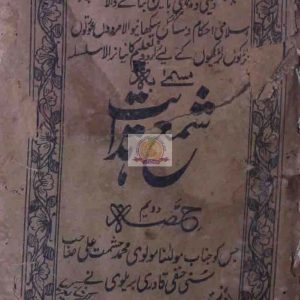 دینی و مذہبی باتیں بتانے والا
اسلامی احکام و مسائل سکھانیوالا مردوں عورتوں
لڑکوں لڑکیوں کے لیے اردو تعلیم کا نیا نرالا سلسلہ
مسمیٰ بہ
شمع ہدایت
حصہ دویم
جس کو جناب مولٰنا مولوی محمد حشمت علی صاحب
سنی حنفی قادری بریلوی نے